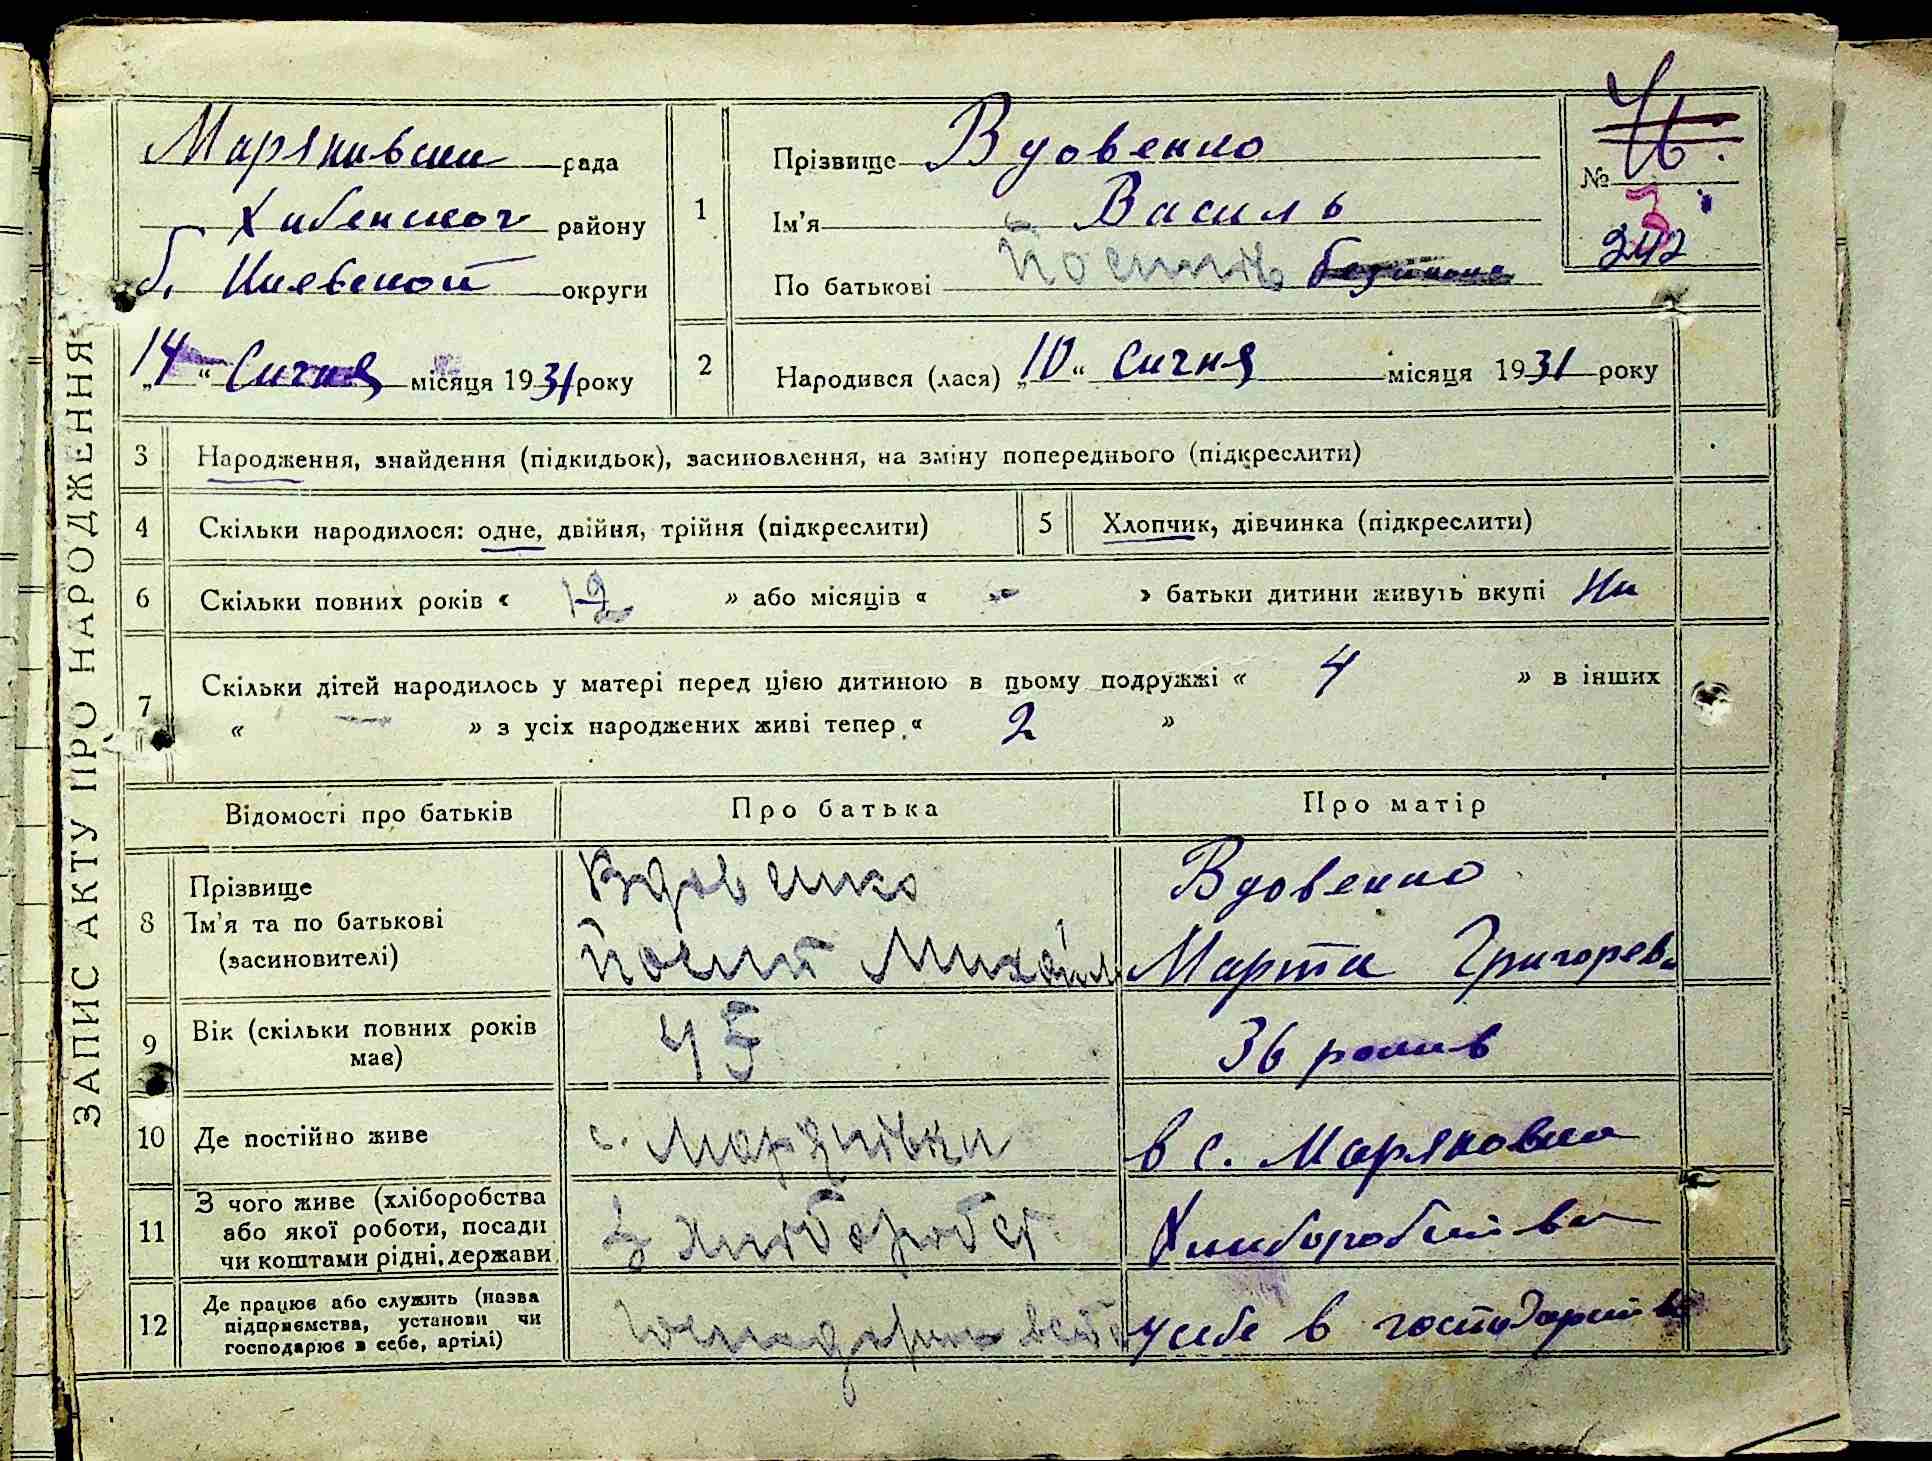 ЗАПИС АКТУ ПРО НАРОДЖЕННЯ
Марянивски рада
району
б. Киевской округи
„14“ Сичня місяця 1931 року
1
Прізвище Вдовенко
Ім'я Василь
По батькові Йосипів
№
3
242
2
Народився (лася) „10“ Сичня місяця 1931 року
3 Народження, знайдення (підкидьок), засиновлення, на зміну попереднього (підкреслити)
4 Скільки народилося: одне, двійня, трійня (підкреслити)
5 Хлопчик, дівчинка (підкреслити)
6 Скільки повних років « » або місяців « - » батьки дитини живуть вкупі
7 Скільки дітей народилось у матері перед цією дитиною в цьому подружжі « 4 » в інших
« — » з усіх народжених живі тепер « 2 »
Відомості про батьків
Про батька
Про матір
8 Прізвище
Ім'я та по батькові
(засиновителі)
Вдовенко
Йосип Михайл
Вдовенко
Марта Григорев.
9 Вік (скільки повних років
має)
45
36 рокив
10 Де постійно живе
с. Марянівки
в с. Маряновки
11 З чого живе (хліборобства
або якої роботи, посади
чи коштами рідні, держави
З хлібороб
Хлиборобства
12 Де працює або служить (назва
підприємства, установи чи
господарює в себе, артілі)
у себе в господарстве